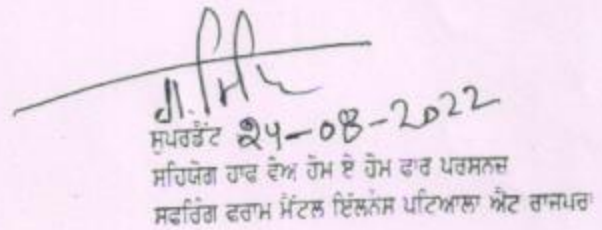 ਸੁਪਰਡੈਂਟ 24-08-2022
ਸਹਿਯੋਗ ਹਾਫ ਵੇਅ ਹੋਮ ਏ ਹੋਮ ਫਾਰ ਪਰਸਨਜ਼
ਸਫਰਿੰਗ ਫਰਾਮ ਮੈਂਟਲ ਇੱਲਨੈਸ ਪਟਿਆਲਾ ਐਟ ਰਾਜਪੁਰਾ